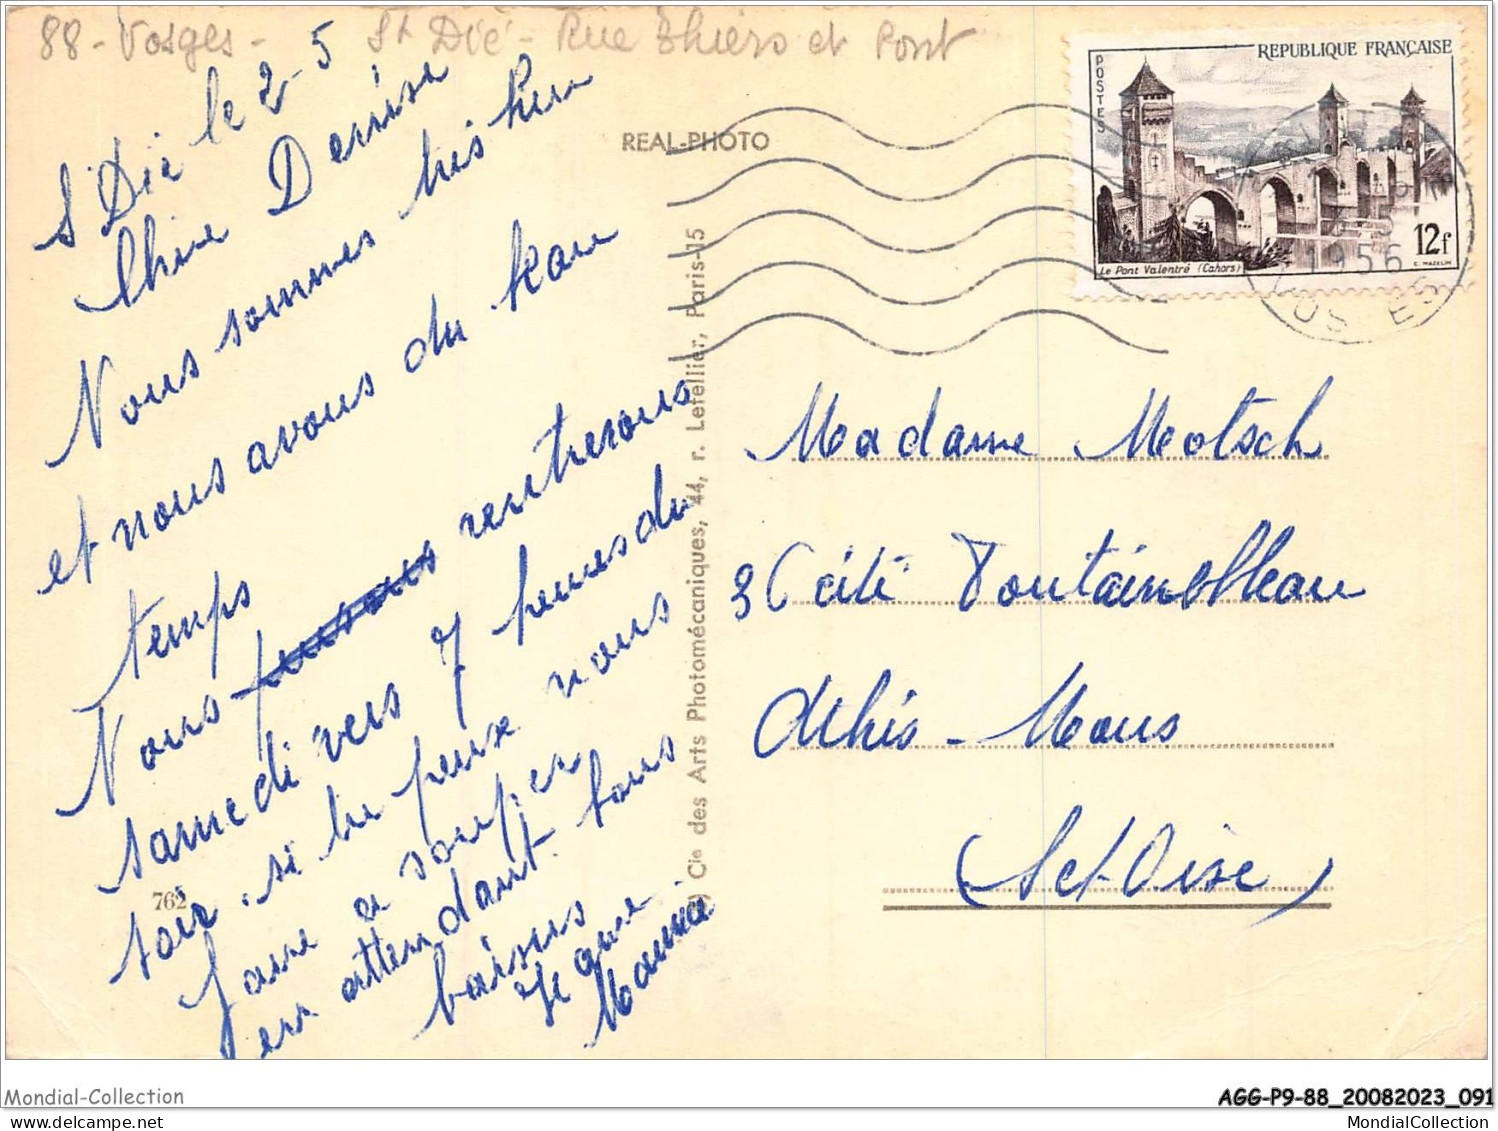 88 - Vosges - St Dié - Rue Thiers et Pont
St Dié le 2-5
Chère Denise
Nous sommes très bien
et nous avons du beau
temps
Nous pensons rentrerons
samedi vers 7 heures du
soir. si tu peux nous
faire à souper
en attendant tous
baisers
Jeanne
Mamie
REAL-PHOTO
Cie des Arts Photomécaniques, 44, r. Letellier, Paris-15
762
REPUBLIQUE FRANÇAISE
POSTES
Le Pont Valentré (Cahors)
12f
C. MAZELIN
1956
VOSGES
Madame Motsch
3 Cité Fontainebleau
Athis-Mons
(Set-Oise)
Mondial-Collection
mondialcollection.com
AGG-P9-88_20082023_091
MondialCollection